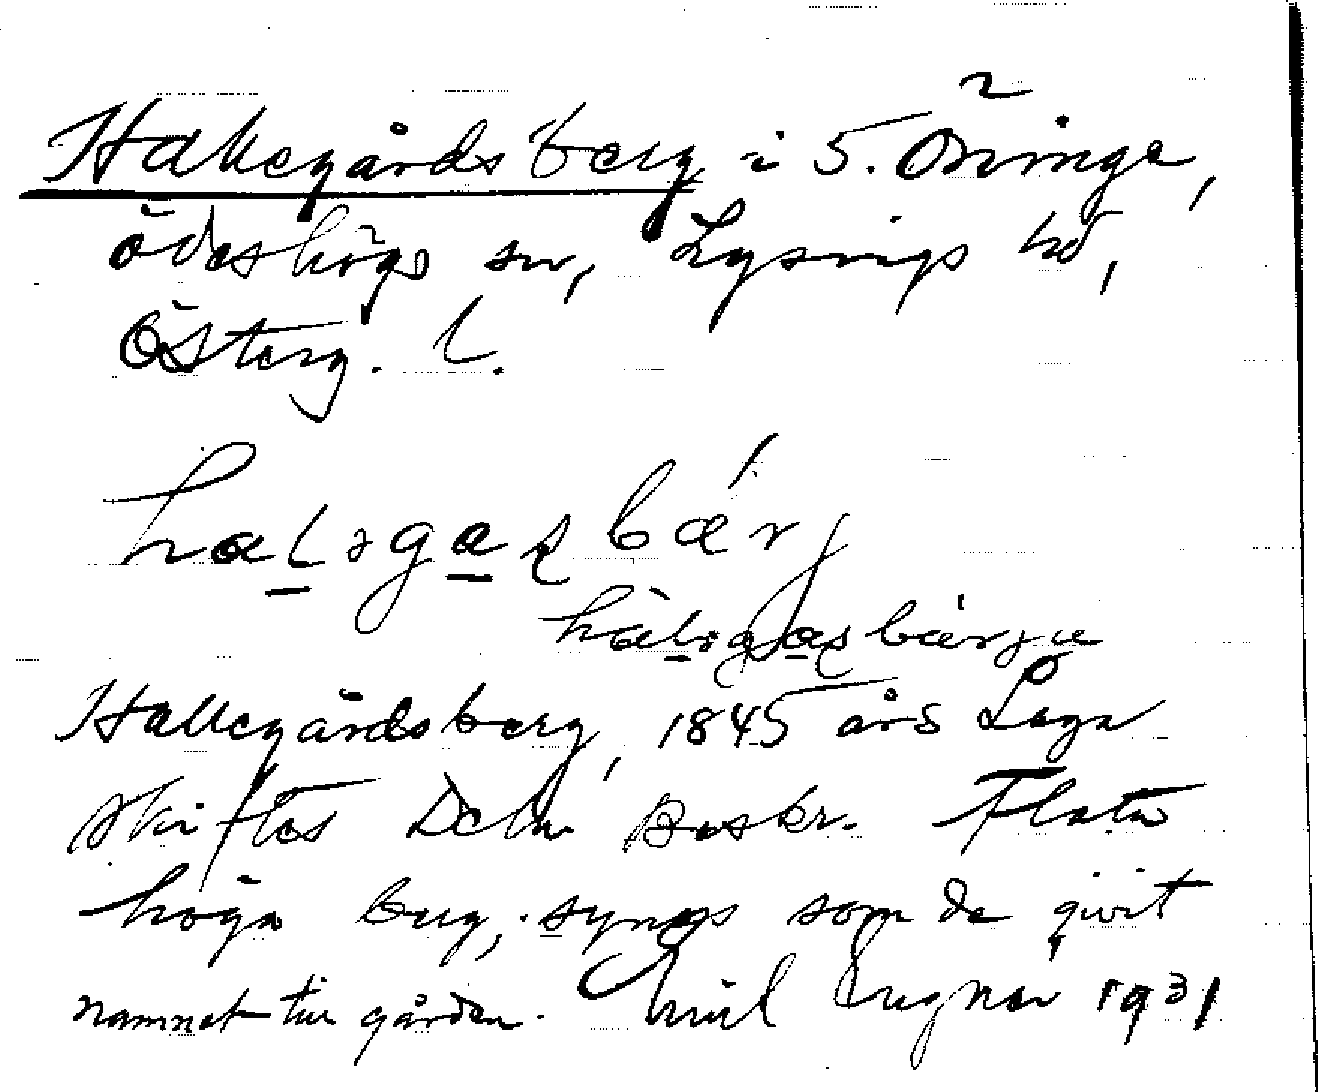 Hallegårdsberg i S. Öninge,
Ödeshögs sn, Lysings hd,
Österg. l.
halegaṣbærj
halegaṣbærja
Hallegårdsberg, 1845 års Laga
skiftes Deln Beskr. Flata
höga berg, synes som de givit
namnet till gården. Emil 1931